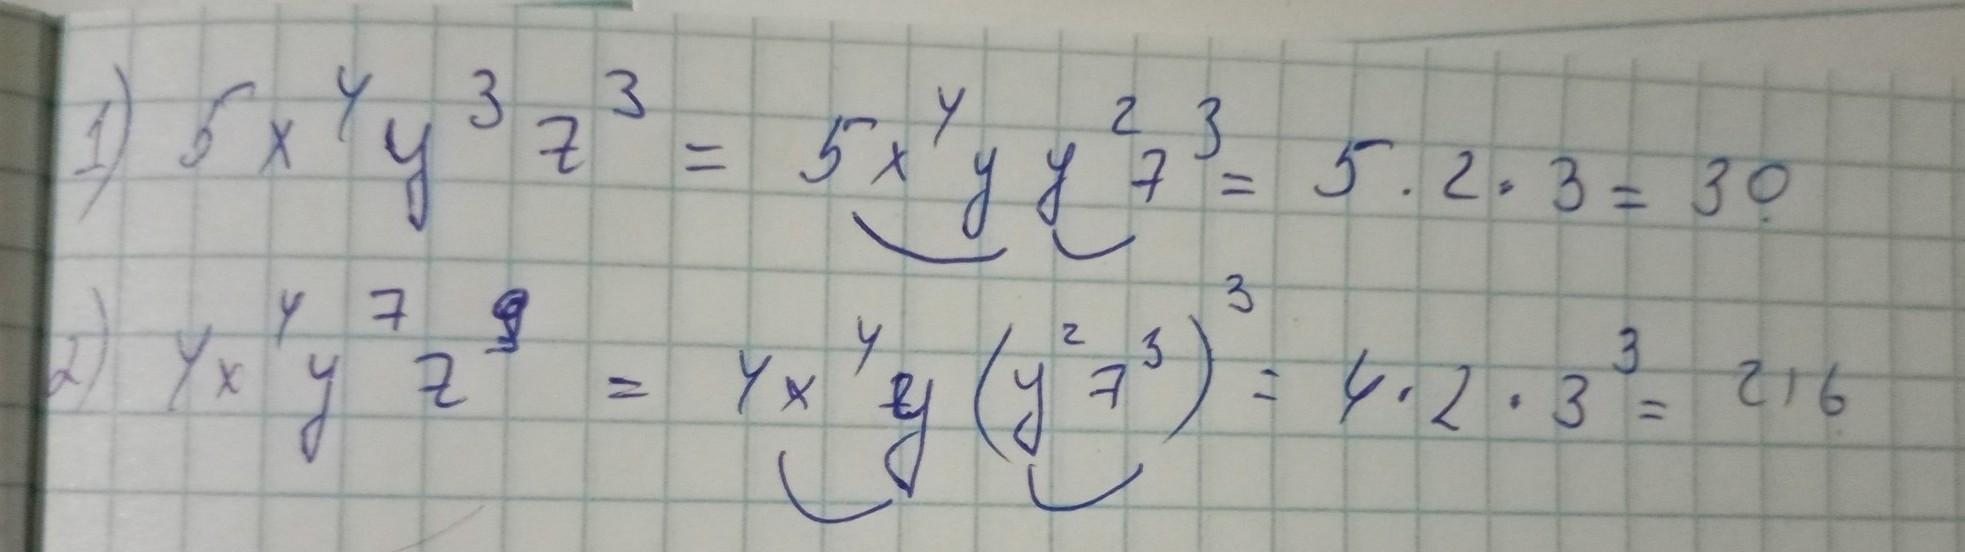 1) 5x⁴y³z³ = 5x⁴yy²z³ = 5·2·3 = 30
2) 4x⁴y⁷z⁹ = 4x⁴y(y²z³)³ = 4·2·3³ = 216